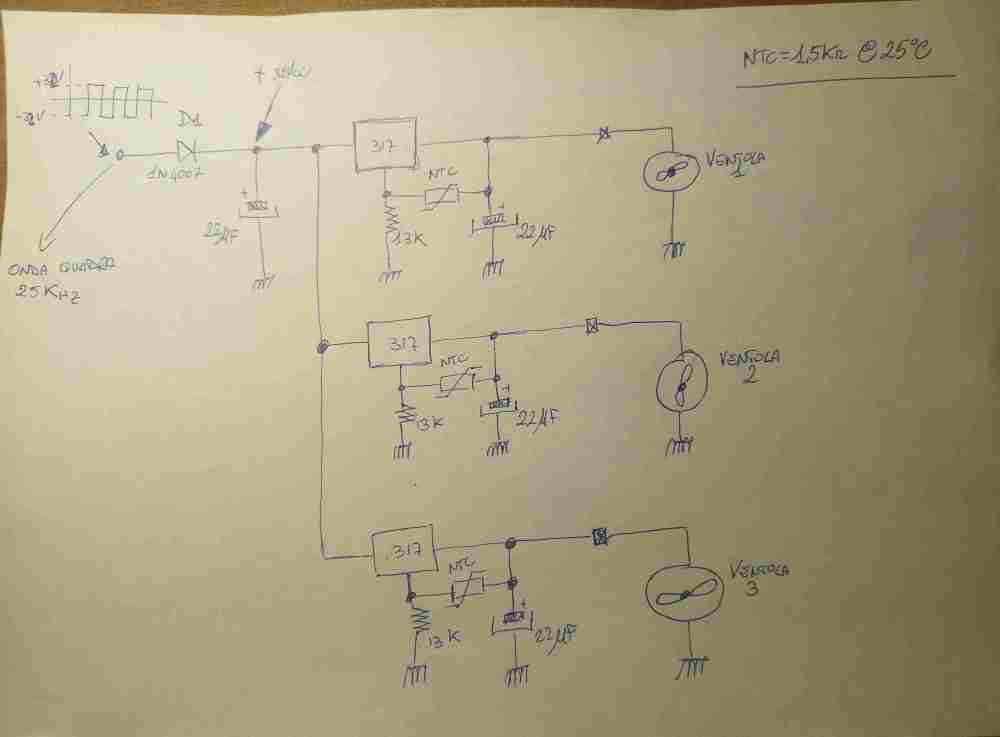 NTC=1,5KΩ @ 25°C
D1
1N4007
22µF
ONDA QUADRA
25KHZ
317
NTC
13K
22µF
VENTOLA
1
317
NTC
13K
22µF
VENTOLA
2
317
NTC
13K
22µF
VENTOLA
3